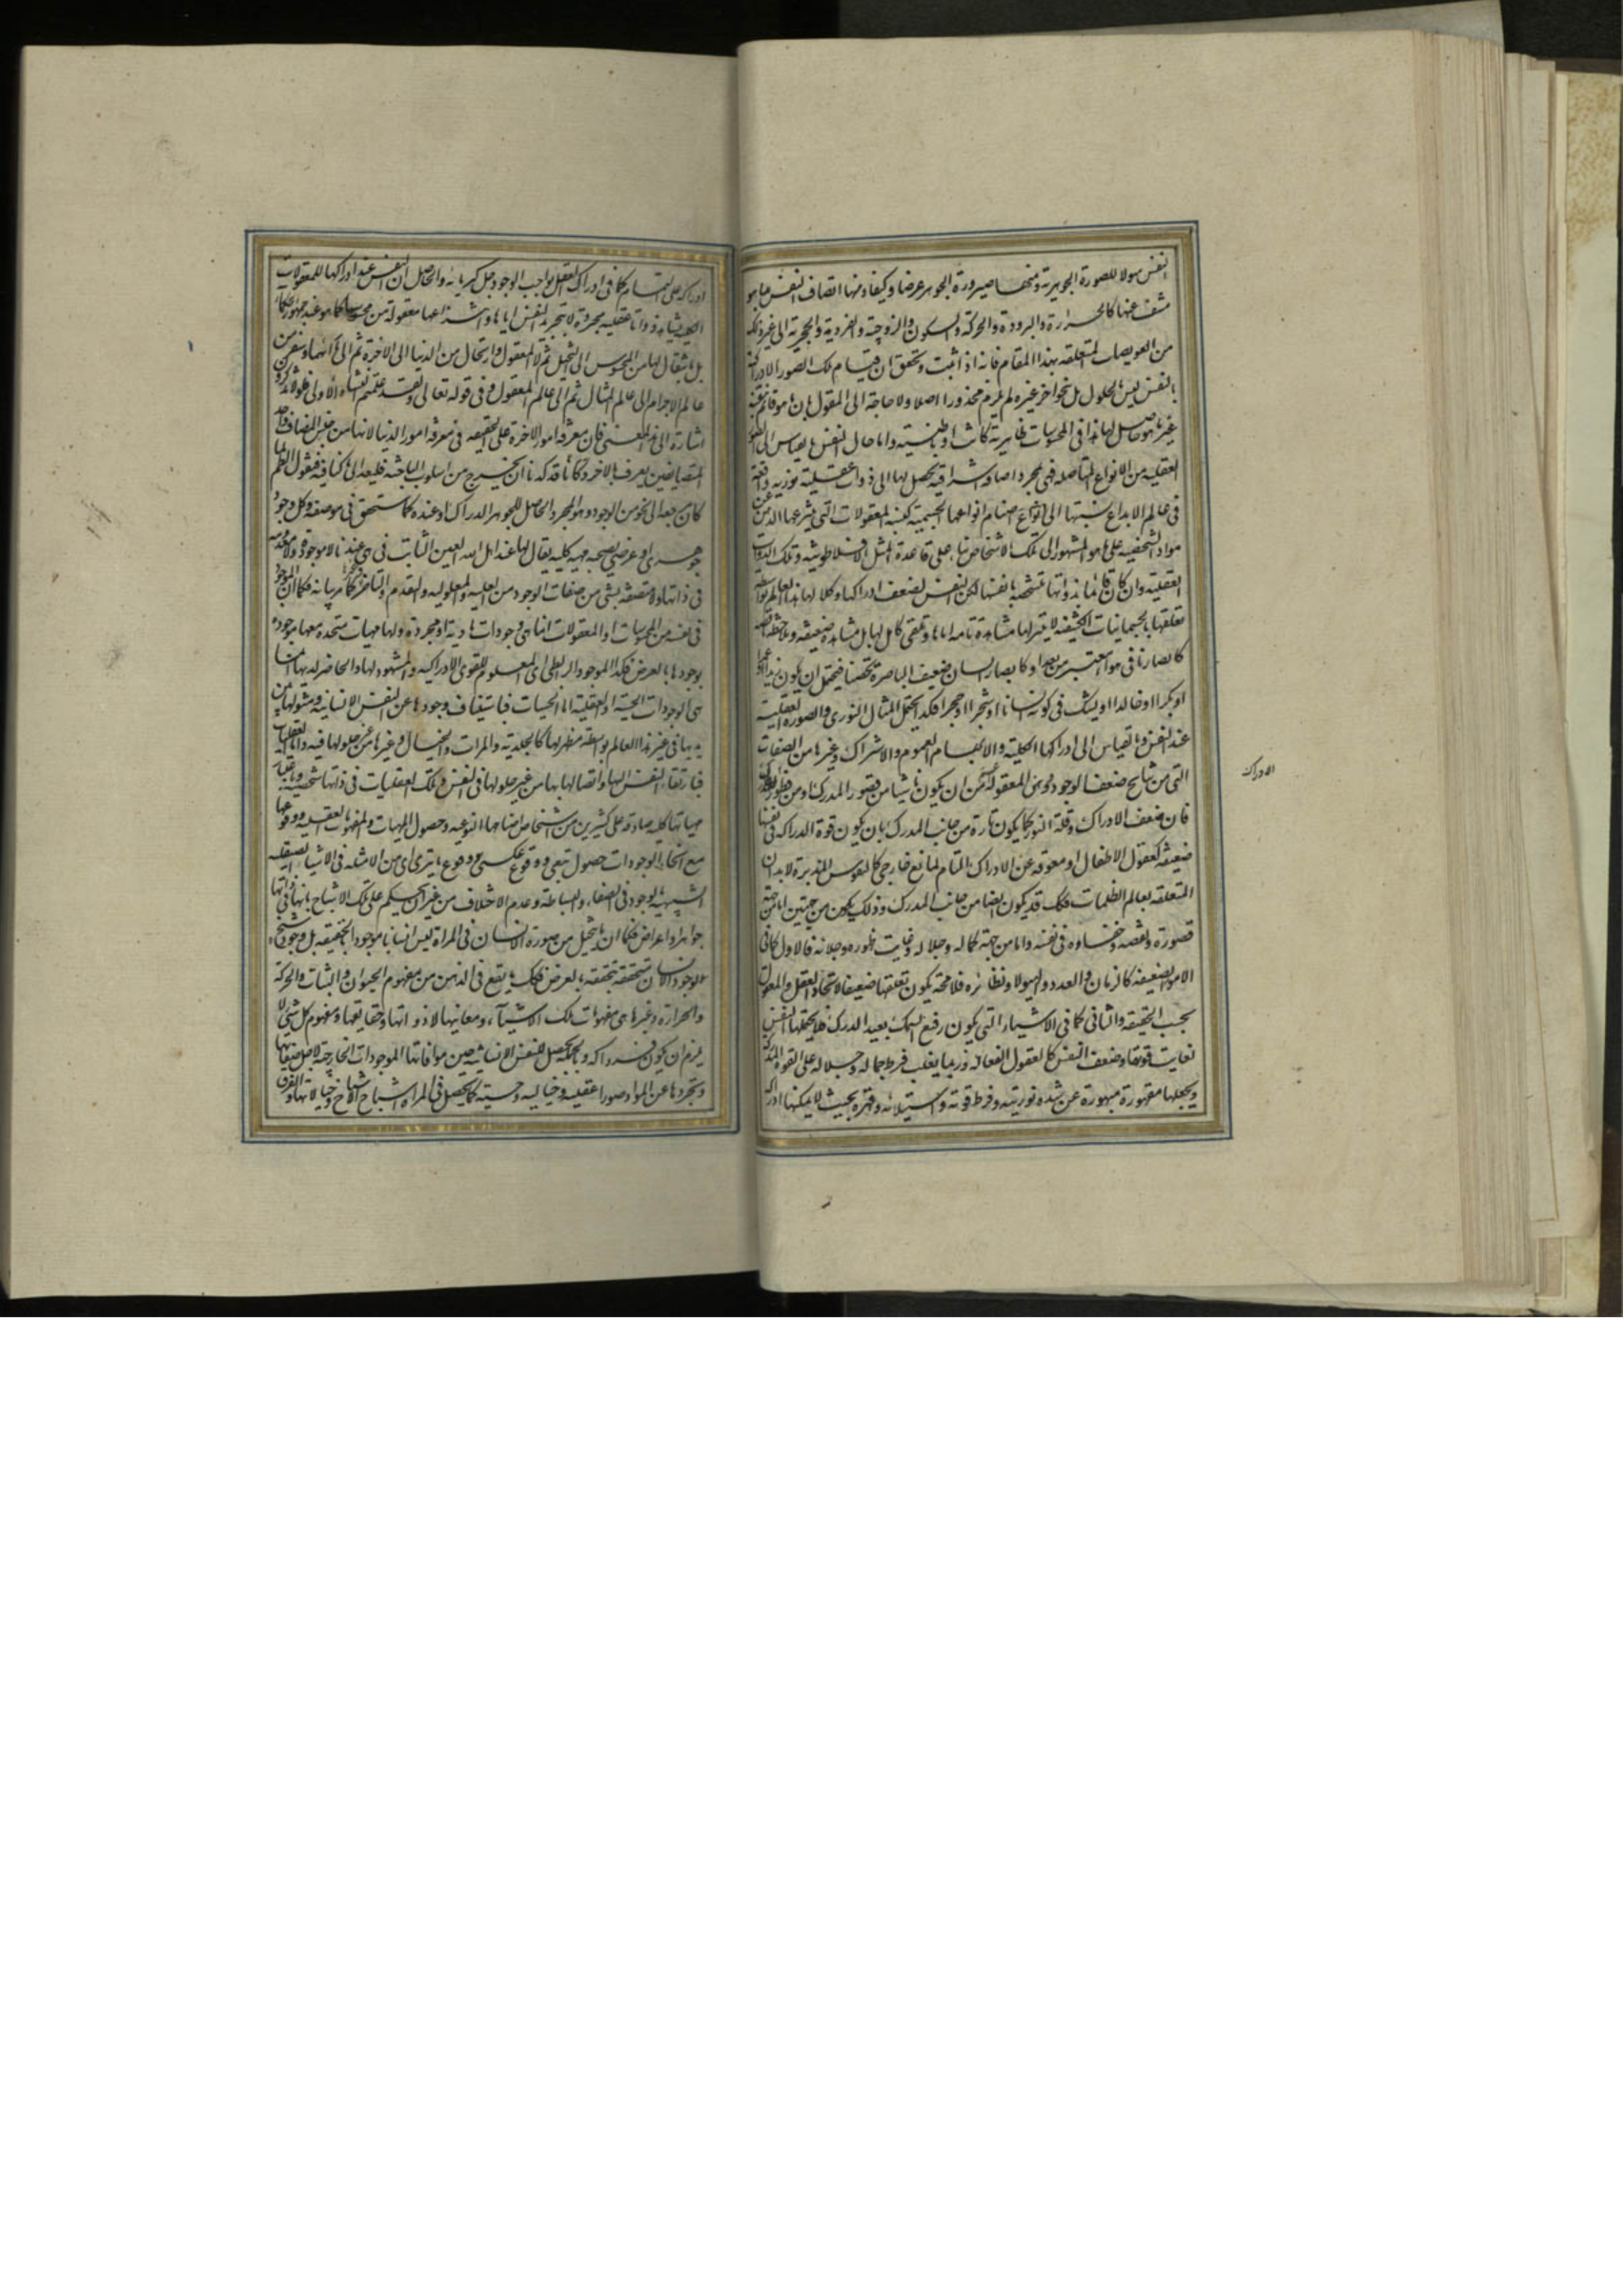 النفس هيولا للصورة الجوهرية ومنها صيرورة الجوهر عرضا وكيفا ومنها اتصاف النفس بما هو
منتف عنها كالحرارة والبرودة والحركة والسكون والزوجية والفردية والحجرية الى غير ذلك
من العويصات المتعلقه بهذا المقام فانه اذا ثبت وتحقق ان قيام تلك الصور الادراكية
بالنفس ليس بالحلول بل بنحو اخر غيره لم يلزم محذورا اصلا ولا حاجة الى القول بان ما هو قائم بالنفس
غير ما هو حاصل لها هذا فى المحسوسات ظاهرية كانت او باطنية واما حال النفس بالقياس الى الصور
العقليه من الانواع المتاصله فهى بمجرد اضافه اشراقيه يحصل لها الى ذوات عقلية نورية واقعة
فى عالم الابداع نسبتها الى انواع اصنام انواعها الجسمية كنسبة المعقولات التى ينتزعها الذهن عن
مواد الشخصيه على ما هو المشهور الى تلك الاشخاص بناء على قاعدة المثل الافلاطونيه وتلك الذوات
العقليه وان كانت قائمة بذواتها متشخصه بانفسها لكن النفس لضعف ادراكها وكلالها فى هذا العالم بواسطة
تعلقها بالجسمانيات الكثيفه لا يتيسر لها مشاهدة تامه اياها وتلقى كامل لها بل مشاهدة ضعيفه وملاحظه ناقصه
كابصارنا فى هواء مغبر من بعد او كابصار انسان ضعيف الباصرة شخصا فيحتمل ان يكون زيدا او عمرا
او بكرا او خالدا او يشك فى كونه انسانا او شجرا او حجرا فكذا يحتمل المثال النورى والصوره العقليه
عند النفس وبالقياس الى ادراكها الكليه والابهام والعموم والاشتراك وغيرها من الصفات
التى من نتايج ضعف الوجود ووهن المعقوليه اعم من ان يكون ناشيا من قصور المدرك او من فتور
فان ضعف الادراك وقلة النور كما يكون تارة من جانب المدرك بان يكون قوة الدراكه فى نفسها
ضعيفة كعقول الاطفال او معوقه عن الادراك التام لمانع خارجى كالنفوس المدبرة لابدان
المتعلقه بعالم الظلمات فكك قد يكون ايضا من جانب المدرك وذلك يكون من جهتين اما من جهة
قصوره ونقصه وخفاءه فى نفسه واما من جهة كماله وجلاله وغايت ظهوره وجلائه فالاول كما فى
الامور الضعيفه كالزمان والعدد والهيولا ونظائره فلا محة يكون تعقلها ضعيفا لاتحاد العقل والمعقول
بحسب الحقيقه والثانى كما فى الاشياء التى يكون رفيع السمك بعيد الدرك فلا يحتملها النفس
لغايت قوتها وضعف النفس كالعقول الفعاله وربما يغلب فرط جماله وجلاله على القوة المدركة
ويجعلها مقهورة مبهورة عن شده نوريته وفرط قوته واستيلائه وقهره بحيث لا يمكنها ادراكه
الادراك
ادراكه على التمام كما فى ادراك العقل لواجب الوجود جل كبريائه والحاصل ان النفس عند ادراكها للمعقولات
الكليه يشاهد ذواتا عقليه مجردة لا بتجريد النفس اياها وانتزاعها معقوله من محسوسها كما هو عند جمهور الحكماء
بل بانتقال لها من المحسوس الى المتخيل ثم الى المعقول وارتحال من الدنيا الى الاخرة ثم الى ما ورائهما وسفر من
عالم الاجرام الى عالم المثال ثم الى عالم المعقول وفى قوله تعالى ولقد علمتم النشاه الاولى فلولا تذكرون
اشارة الى هذا المعنى فان معرفه امور الاخرة على الحقيقه فى معرفه امور الدنيا لانها من جنس المضاف واحد
المتضايفين يعرف بالاخر وكأنا قد كدنا ان نخرج من اسلوب المباحثه فلنعد الى ما كنا فيه فنقول العلم لما
كان مرجعه الى نحو من الوجود وهو المجرد الحاصل للجوهر الدراك او عنده كما سنحقق فى موضعه وكل وجود
جوهرى او عرضى يصحبه مهيه كليه يقال لها عند اهل الله العين الثابت فهى عندنا لا موجودة ولا معدومه
فى ذاتها ولا متصفه بشى من صفات الوجود من العليه والمعلوليه والتقدم والتاخر وغيرها كما مر بيانه فكما ان الموجود
فى نفسه من المحسوسات او المعقولات انما هى وجودات مادية او مجردة ولها مهيات متحده معها موجودة
بوجودها بالعرض فكذا الموجود الرابطى اى المعلوم للقوى الادراكيه والمشهود لها والحاضر لديها انما
هى الوجودات الحسية او العقلية اما الحسيات فباستيناف وجودها عن النفس الانسانيه ومثولها بين
يديها فى غير هذا العالم بواسطه مظهر لها كالجليديه والمرآت والخيال وغيرها من غير حلولها فيه واما العقليات
فبارتقاء النفس اليها واتصالها بها من غير حلولها فى النفس وتلك العقليات فى ذاتها شخصيه وباعتبار
مهياتها كليه صادقه على كثيرين من اشخاص اصنامها النوعيه وحصول المهيات والمفهومات العقليه ووقوعها
مع انحاء الوجودات حصول تبعى ووقوع عكسى وقوع ما يترائى من الامثله فى الاشياء الصيقليه
الشبيهه بالوجود فى الصفاء والبساطه وعدم الاختلاف من غير ان يحكم على تلك الاشباح بانها فى ذواتها
جواهر او اعراض فكما ان ما يتخيل من صورة الانسان فى المراة ليس انسانا موجودا بالحقيقه بل وجوده شبح
لوجود الانسان متحققه بتحققه بالعرض فكك ما يقع فى الذهن من مفهوم الحيوان والنبات والحركة
والحرارة وغيرها هى مفهومات تلك الاشياء ومعانيها لا ذواتها وحقايقها ومفهوم كل شى لا
يلزم ان يكون فردا له وبالجمله يحصل للنفس الانسانيه حين موافاتها الموجودات الخارجه لاجل صفائها
وتجردها عن المواد صورا عقليه وخياليه وحسيه كما يحصل فى المراه اشباح تلك الاشياء وخيالاتها والفرق